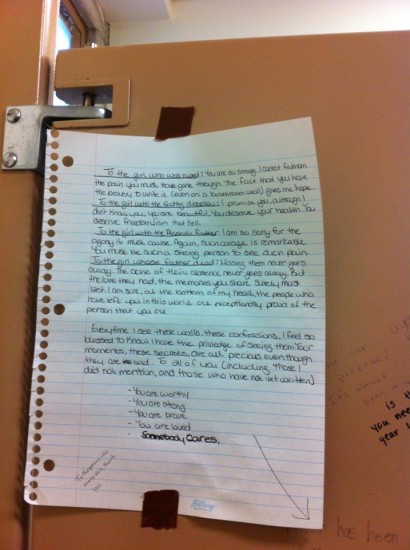 To the girl who was raped: You are so strong. I cannot fathom
the pain you must have gone through. The fact that you have
the bravery to write it (even on a bathroom wall) gives me hope.
To the girl with the eating disorder: I promise you, although I
don't know you, you are beautiful. You deserve your health. You
deserve freedom from that hell.
To the girl with the Father: I am so sorry for the
agony he must cause. Again, such courage is remarkable.
You must be such a strong person to endure such pain.
To the girl whose Father died: Missing them never goes
away. The ache of their absence never goes away. But
the love they had, the memories you share surely must
last. I am sure, at the bottom of my heart, the people who
have left you in this world are exceptionally proud of the
person that you are.
Everytime I see these walls, these confessions, I feel so
blessed to know I have the privilege of seeing them. Your
moments, these secrets, are all precious, even though
they are sad. To all of you (including those I
did not mention, and those who have not yet written)
- You are worthy
- You are strong
- You are brave
- You are loved
- Somebody Cares.
is
you nee
year
has been